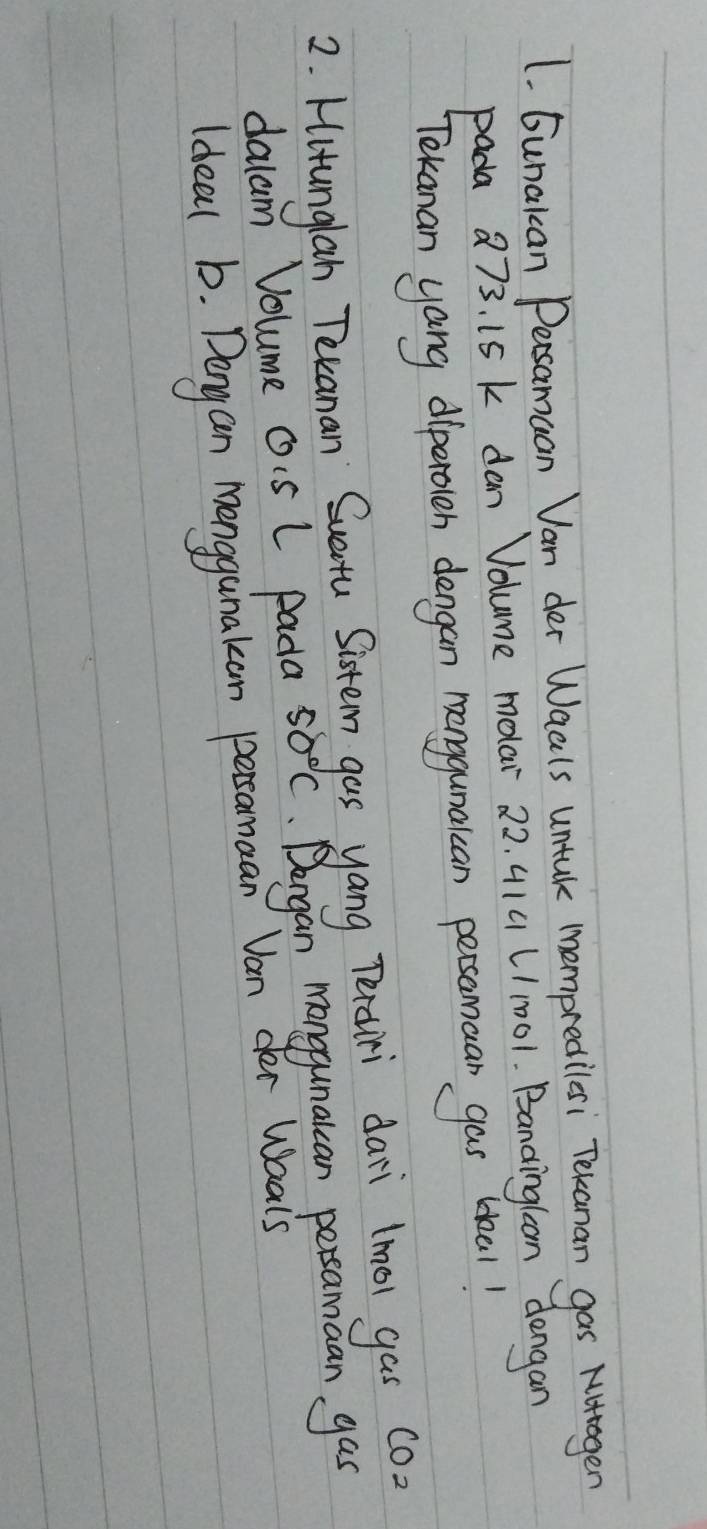 1. Gunakan Persamaan Van der Waals untuk memprediksi Tekanan gas Nitrogen
pada 273.15 k dan Volume molar 22.414 L/mol. Bandingkan dengan
Tekanan yang diperoleh dengan menggunakan persamaan gas ideal!
2. Hitunglah Tekanan Suatu Sistem gas yang Terdiri dari 1mol gas CO2
dalam Volume 0.5 L pada 50°C. Dengan menggunakan persamaan gas
Ideal b. Dengan menggunakan persamaan Van der Waals